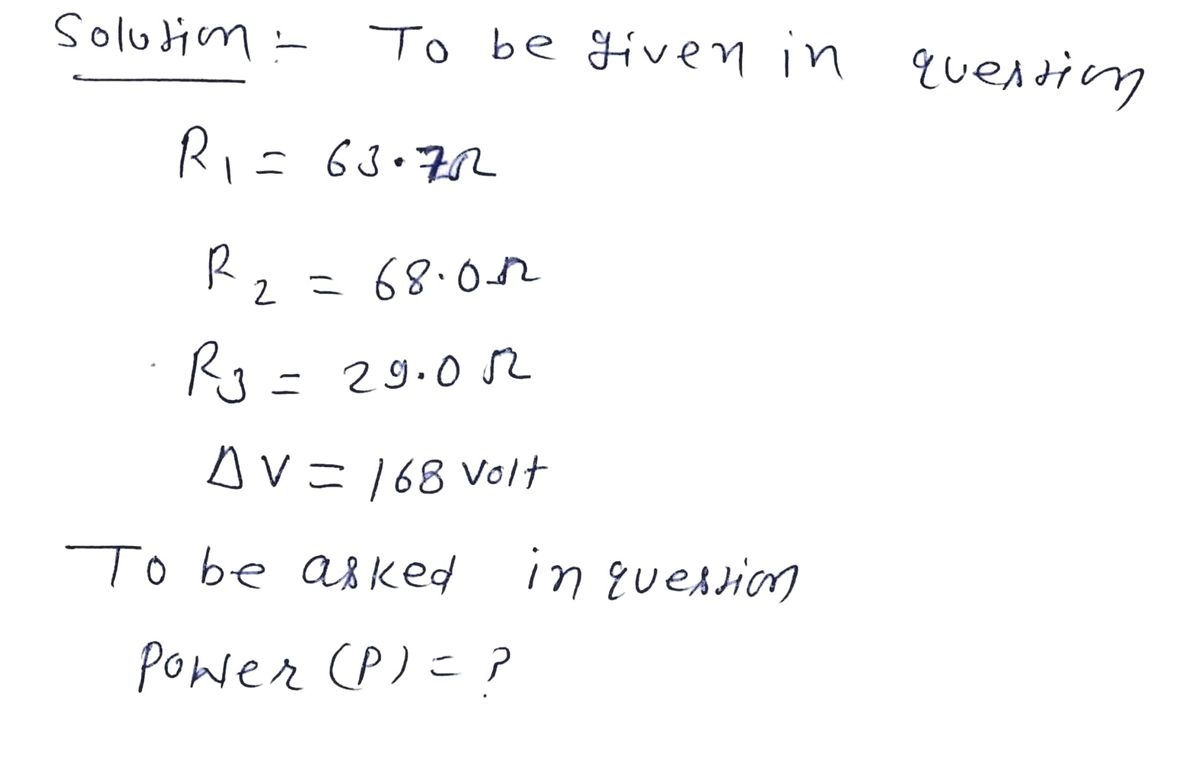 Solution :- To be given in question
R1 = 63.7Ω
R2 = 68.0Ω
R3 = 29.0 Ω
ΔV = 168 Volt
To be asked in question
Power (P) = ?